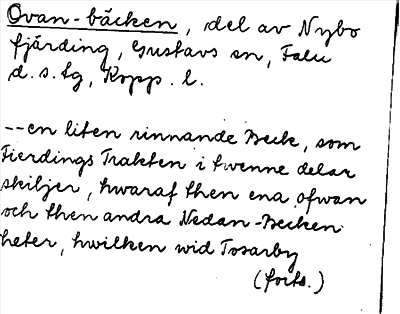 Ovan-bäcken, del av Nybo
fjärding, Gustavs sn, Falu
d.s.lg, Kopp. l.
--en liten rinnande Beck, som
Fierdings Trakten i twenne delar
skiljer, hwaraf then ena ofwan
och then andra Nedan-Becken
heter, hwilken wid Tosarby
(forts.)